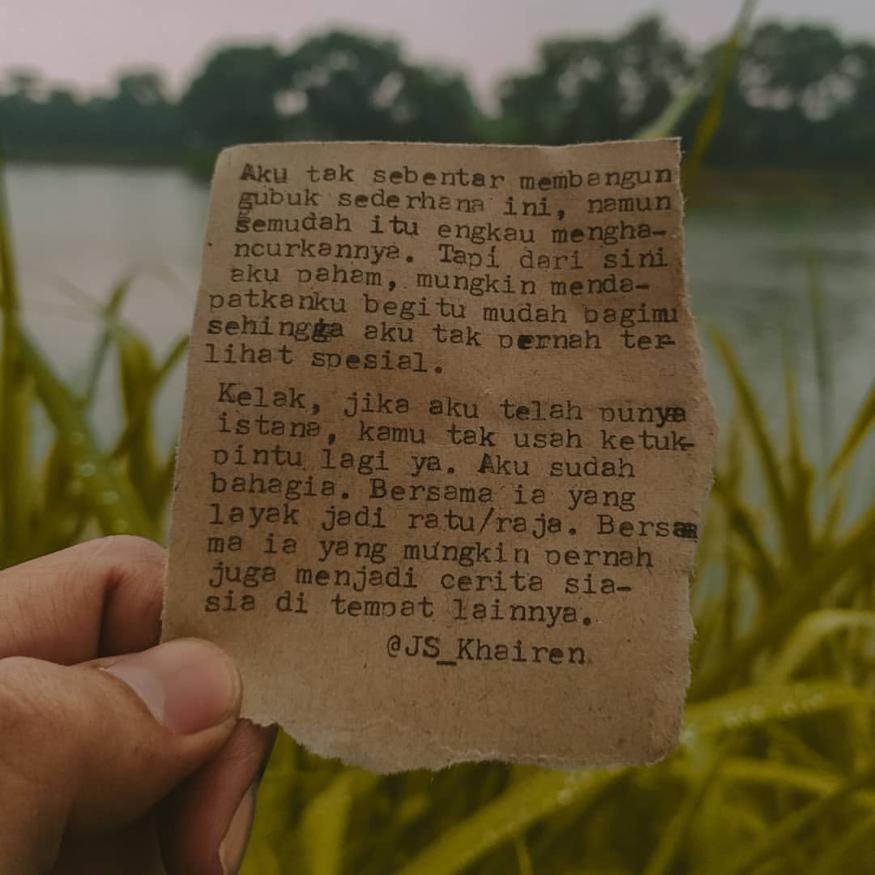 Aku tak sebentar membangun
gubuk sederhana ini, namun
semudah itu engkau mengha-
ncurkannya. Tapi dari sini
aku paham, mungkin menda-
patkanku begitu mudah bagimu
sehingga aku tak pernah ter-
lihat spesial.
Kelak, jika aku telah punya
istana, kamu tak usah ketuk-
pintu lagi ya. Aku sudah
bahagia. Bersama ia yang
layak jadi ratu/raja. Bersa
ma ia yang mungkin pernah
juga menjadi cerita sia-
sia di tempat lainnya.
@JS_Khairen